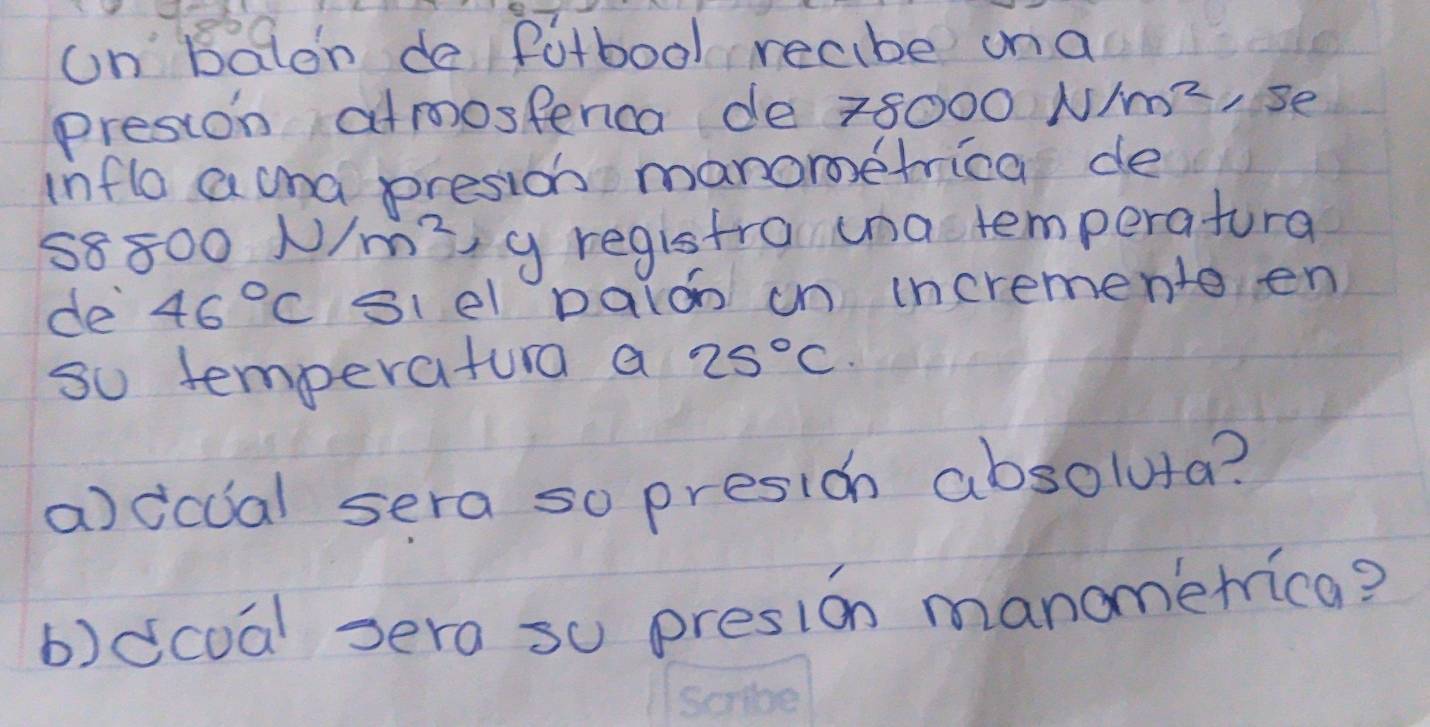 Un balón de fútbool recibe una
presión atmosferica de 78000 N/m², se
inflo a una presión manométrica de
58800 N/m², y registra una temperatura
de 46°C si el balón un incremento en
su temperatura a 25°C.
a) ¿cúal sera su presión absoluta?
b) ¿cuál sera su presión manométrica?
Scribe